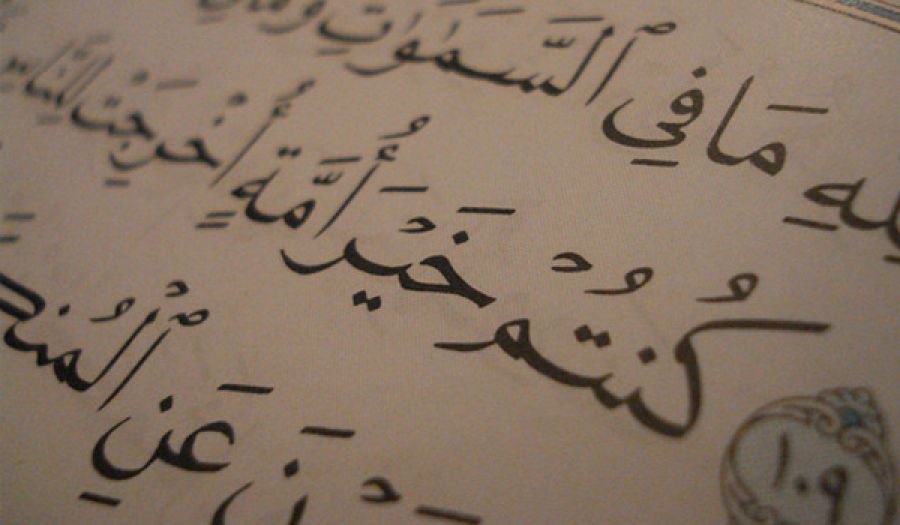 لِلَّهِ مَا فِي ٱلسَّمَٰوَٰتِ وَمَا
١٠٩ كُنتُمْ خَيْرَ أُمَّةٍ أُخْرِجَتْ لِلنَّاسِ
عَنِ ٱلْمُنكَ